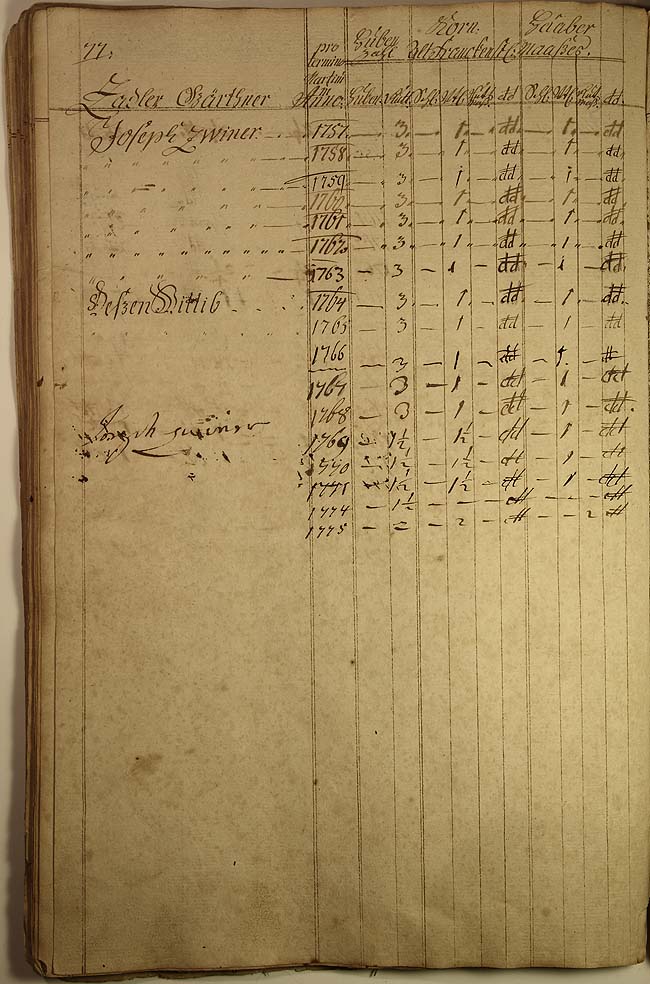 77.
pro termino Martini Anno.
Huben Zahl
Korn
Haaber
Maaßes.
Zadler Gärthner
Huben
dd
dd.
Joseph Zwiner 1757 — 3 — 1 — dd — 1 — dd
1758 — 3 — 1 — dd — 1 — dd
1759 — 3 — 1 — dd — 1 — dd
1760 — 3 — 1 — dd — 1 — dd
1761 — 3 — 1 — dd — 1 — dd
1762 — 3 — 1 — dd — 1 — dd
1763 — 3 — 1 — dd — 1 — dd
Deßen Wittib 1764 — 3 — 1 — dd — 1 — dd
1765 — 3 — 1 — dd — 1 — dd
1766 — 3 — 1 — dd — 1 — dd
1767 — 3 — 1 — dd — 1 — dd
1768 — 3 — 1 — dd — 1 — dd.
Joseph zwiner 1769 1½ — 1½ — dd — 1 — dd
1770 1½ — 1½ — dd — 1 — dd
1771 1½ — 1½ — dd — 1 — dd
1774 — 1½ — — — dd — — — dd
1775 — — — 2 — dd — — 2 dd